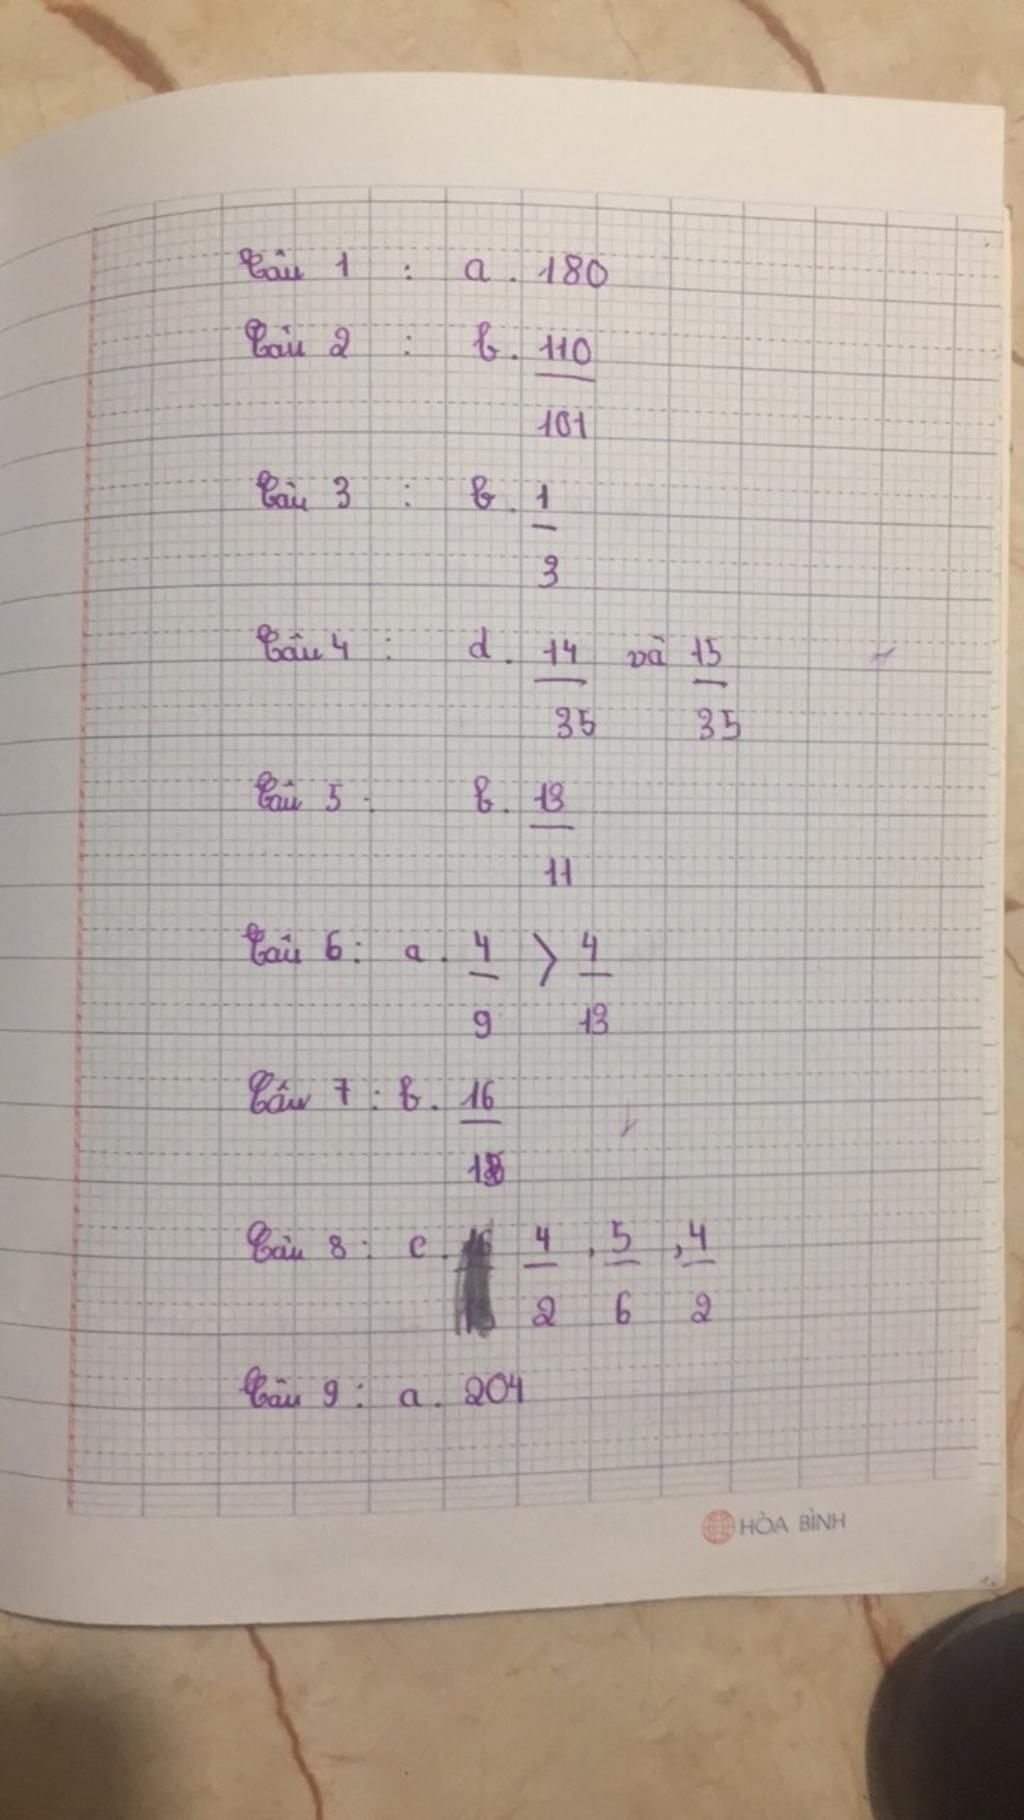 Câu 1 : a. 180
Câu 2 : b. 110
101
Câu 3 : b. 1
3
Câu 4 : d. 14 và 15
35 35
Câu 5 : b. 13
11
Câu 6 : a. 4 > 4
9 13
Câu 7 : b. 16
18
Câu 8 : c. 4 , 5 , 4
2 6 2
Câu 9 : a. 204
HÒA BÌNH